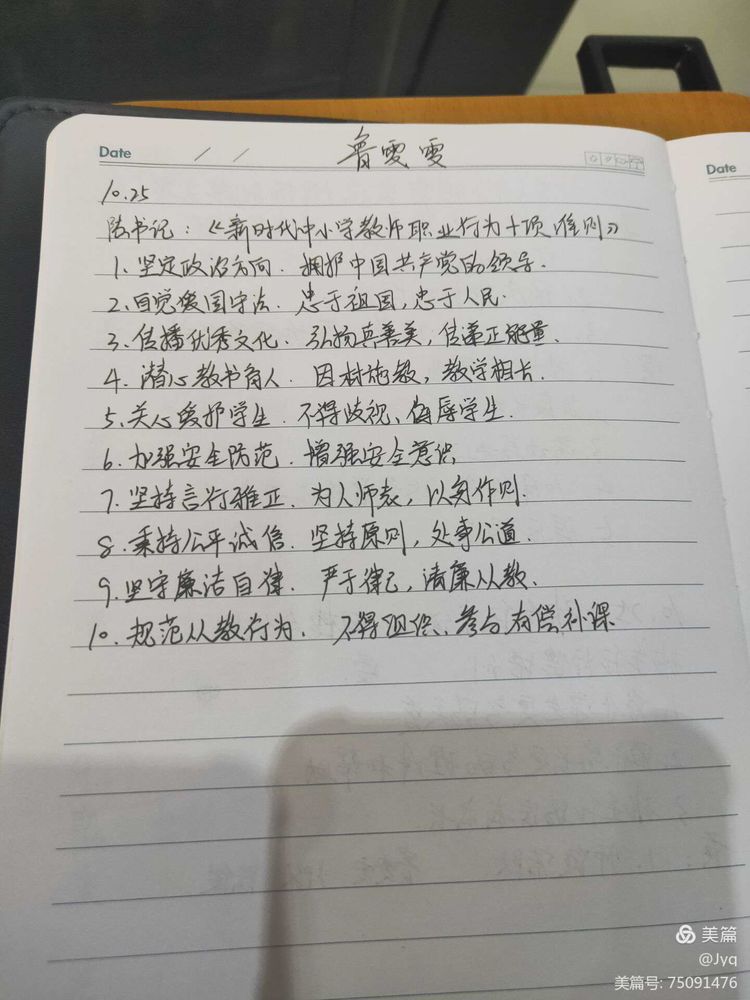 Date / /
鲁雯雯
10.25
陆书记：《新时代中小学教师职业行为十项准则》
1. 坚定政治方向. 拥护中国共产党的领导.
2. 自觉爱国守法. 忠于祖国, 忠于人民.
3. 传播优秀文化. 弘扬真善美, 传递正能量.
4. 潜心教书育人. 因材施教, 教学相长.
5. 关心爱护学生. 不得歧视、侮辱学生.
6. 加强安全防范. 增强安全意识
7. 坚持言行雅正. 为人师表, 以身作则.
8. 秉持公平诚信. 坚持原则, 处事公道.
9. 坚守廉洁自律. 严于律己, 清廉从教.
10. 规范从教行为. 不得组织、参与有偿补课
Date
美篇
@Jyq
美篇号: 75091476